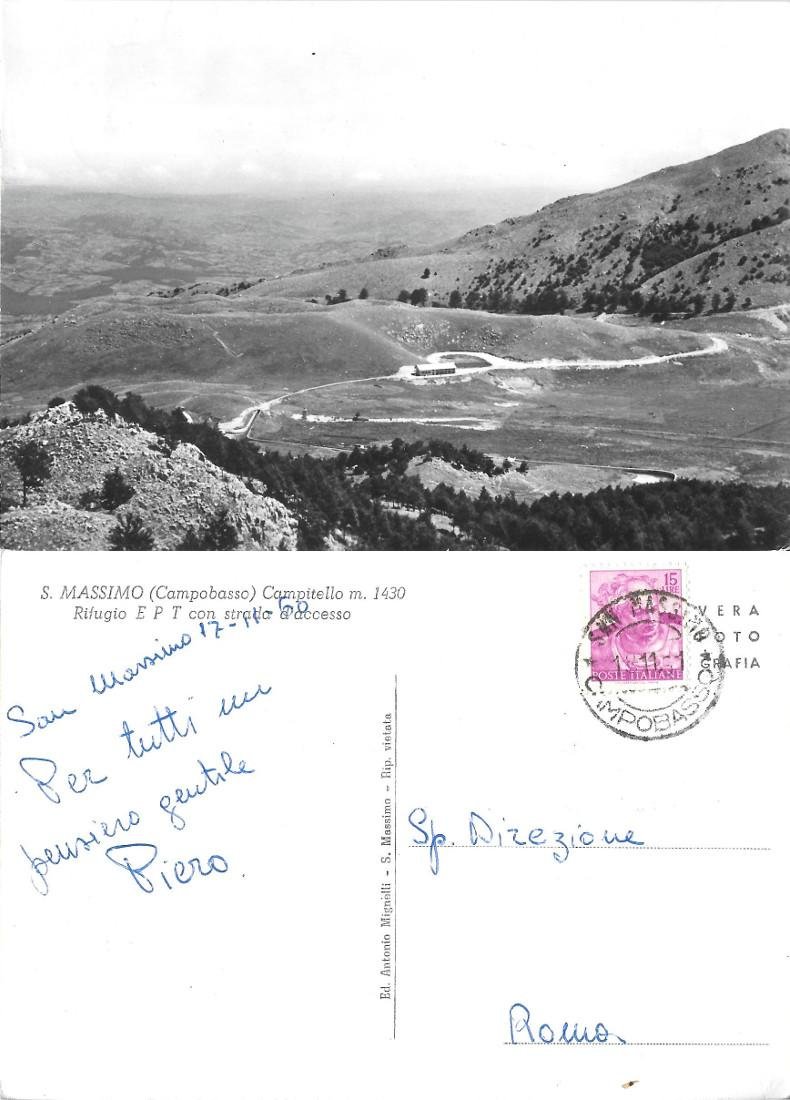 S. MASSIMO (Campobasso) Campitello m. 1430
Rifugio E P T con strada d'accesso
San Massimo 17-11-60
Per tutti un
pensiero gentile
Piero.
Ed. Antonio Mignelli - S. Massimo - Rip. vietata
15
LIRE
POSTE ITALIANE
SAN MASSIMO
CAMPOBASSO
VERA
FOTO
GRAFIA
Sp. Direzione
Roma